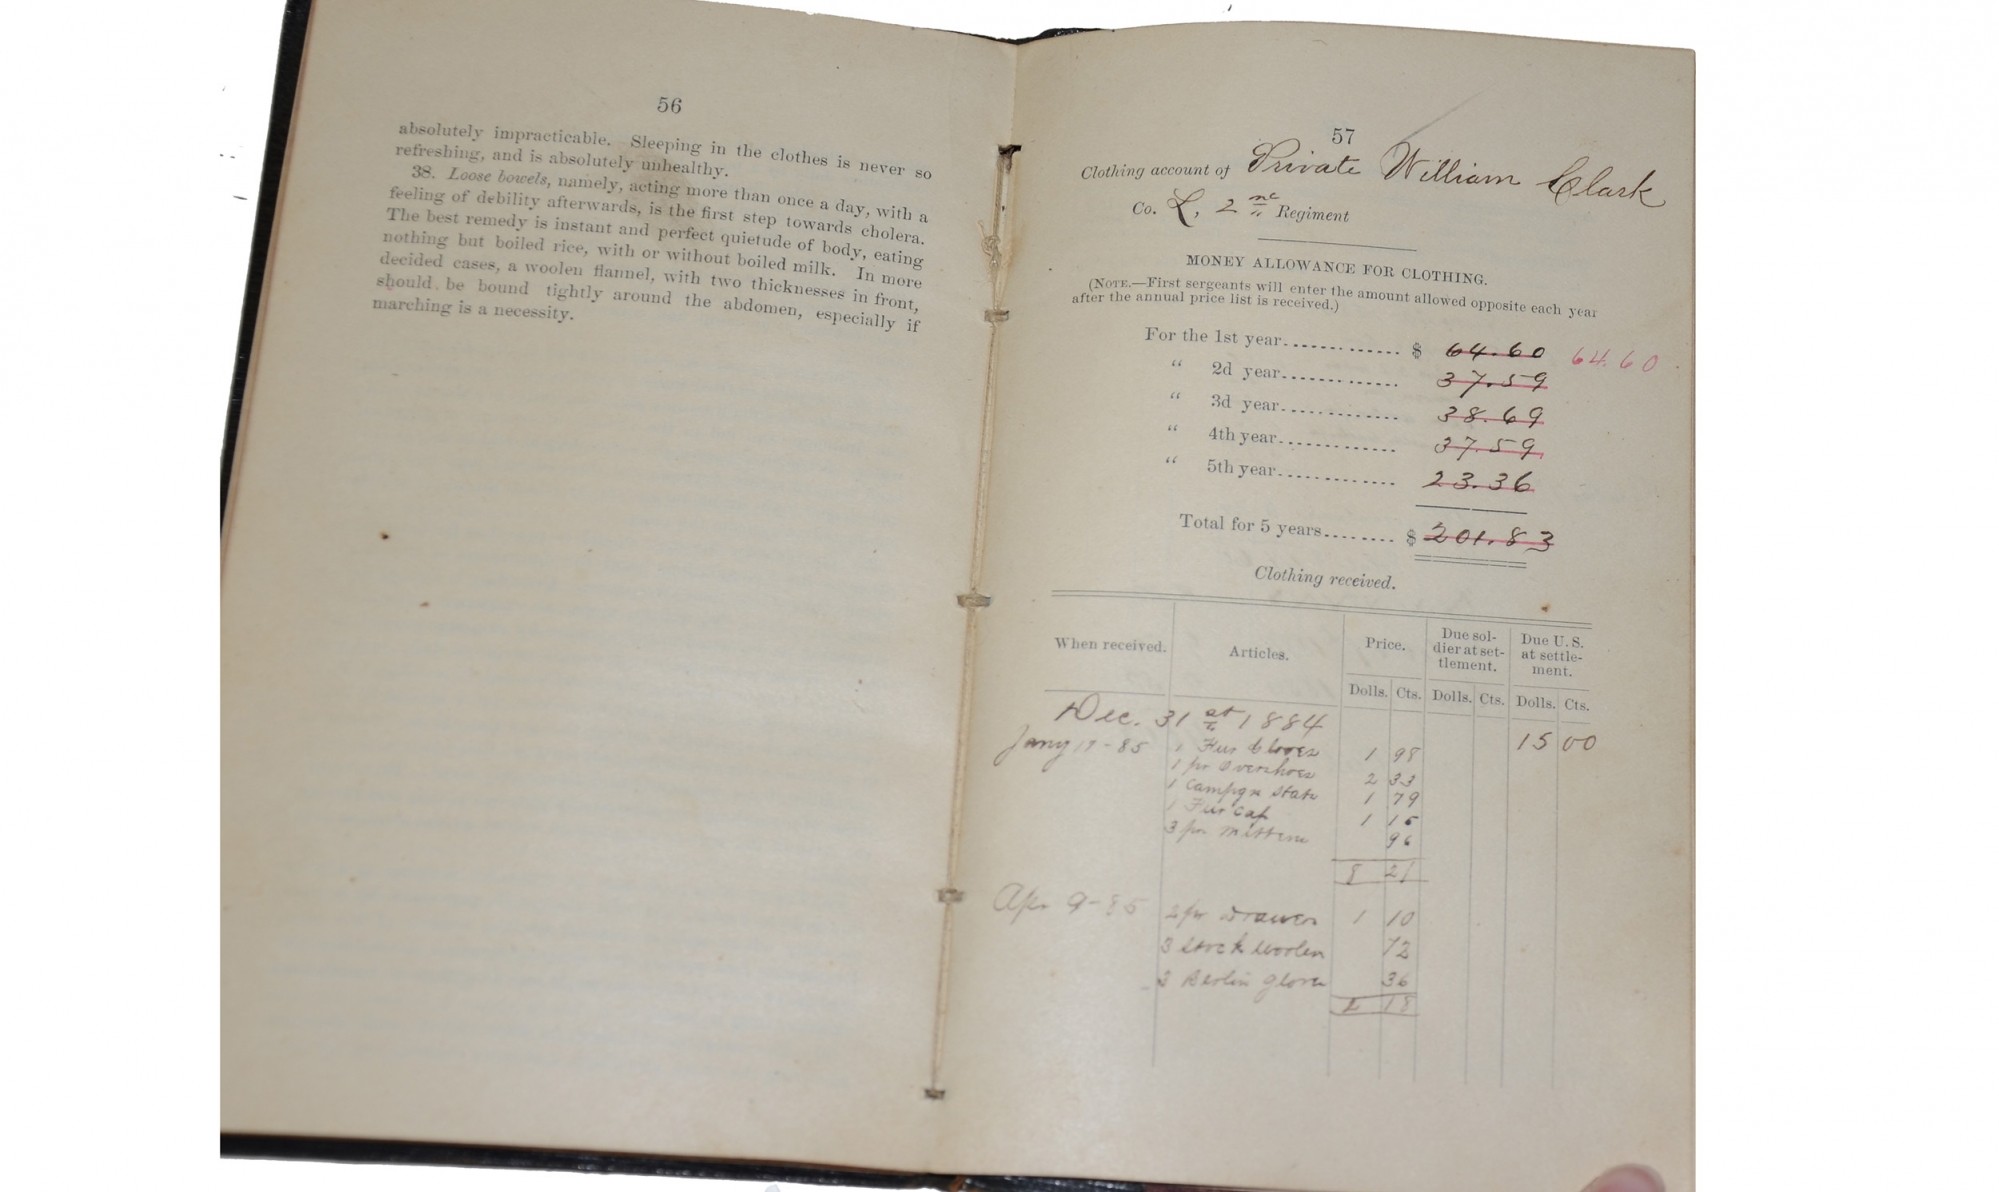 56
absolutely impracticable. Sleeping in the clothes is never so
refreshing, and is absolutely unhealthy.
38. Loose bowels, namely, acting more than once a day, with a
feeling of debility afterwards, is the first step towards cholera.
The best remedy is instant and perfect quietude of body, eating
nothing but boiled rice, with or without boiled milk. In more
decided cases, a woolen flannel, with two thicknesses in front,
should be bound tightly around the abdomen, especially if
marching is a necessity.
57
Clothing account of Private William Clark
Co. L, 2 Regiment
MONEY ALLOWANCE FOR CLOTHING.
(NOTE.—First sergeants will enter the amount allowed opposite each year
after the annual price list is received.)
For the 1st year............. $ 64.60 64.60
“ 2d year............. 37.59
“ 3d year............. 38.69
“ 4th year............. 37.59
“ 5th year............. 23.36
Total for 5 years........ $ 201.83
Clothing received.
When received. Articles. Price. Due sol-
dier at set-
tlement. Due U.S.
at settle-
ment.
Dolls. Cts. Dolls. Cts. Dolls. Cts.
Dec. 31 st 1884 15 00
Jany 85 1 Fur Gloves 1 98
1 pr Overshoes 2 33
1 Campgn 1 79
1 Fur Cap 1 15
3 pr Mittens 96
8 21
Apr 9-85 2 pr Drawers 1 10
3 Stock Woolen 72
3 Berlin Gloves 36
2 18